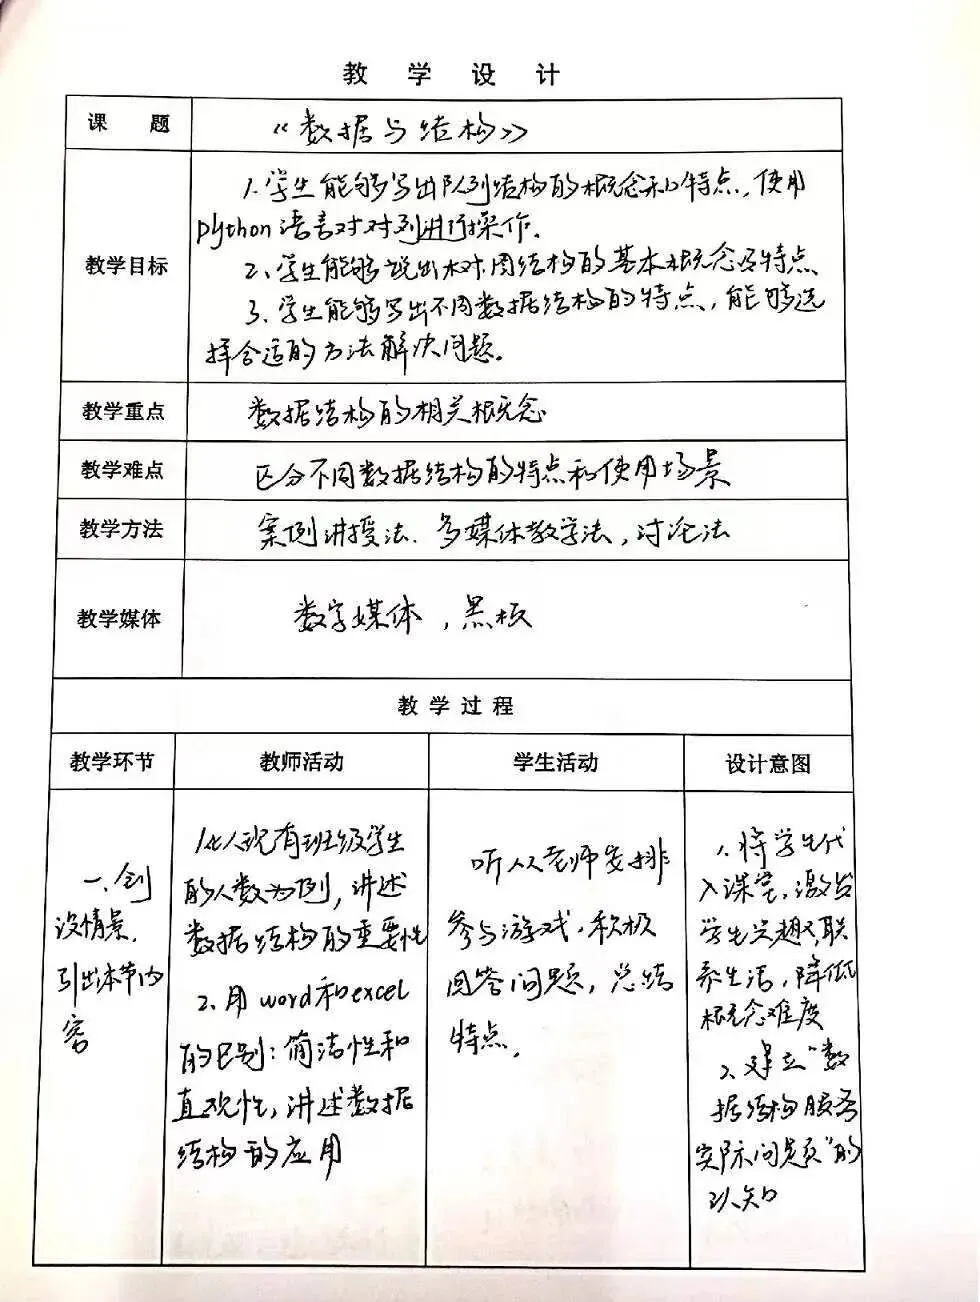 教 学 设 计
课 题
《数据与结构》
教学目标
1.学生能够写出队列结构的概念和特点,使用
python语言对对列进行操作.
2、学生能够说出树.图结构的基本概念及特点
3、学生能够写出不同数据结构的特点,能够选
择合适的方法解决问题。
教学重点
数据结构的相关概念
教学难点
区分不同数据结构的特点和使用场景
教学方法
案例讲授法、多媒体教学法,讨论法
教学媒体
数字媒体,黑板
教 学 过 程
教学环节
教师活动
学生活动
设计意图
一、创
设情景,
引出本节内
容
1.以现有班级学生
的人数为例,讲述
数据结构的重要性
2、用word和excel
的区别:简洁性和
直观性,讲述数据
结构的应用
听从老师安排
参与游戏,积极
回答问题,总结
特点.
1.将学生代
入课堂,激发
学生兴趣,联
系生活,降低
概念难度
2、建立"数
据结构服务
实际问题"的
认知